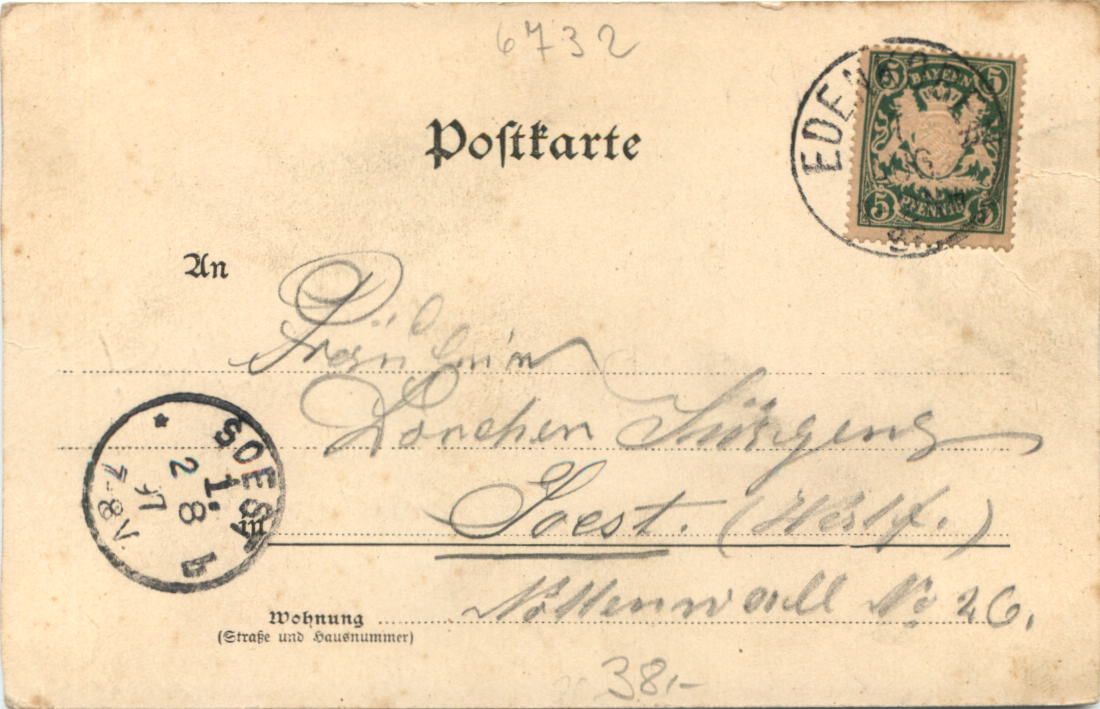 6732
EDENKOBEN
5 5
BAYERN
PFENNIG
5 5
Poſtkarte
An
Fräulein
Lönchen Jürgens
SOEST
1.
2 8
97
7-8 N
b
in
Soest. (Westf.)
Wohnung
(Straße und Hausnummer)
Nöttenwall No 26.
38,-